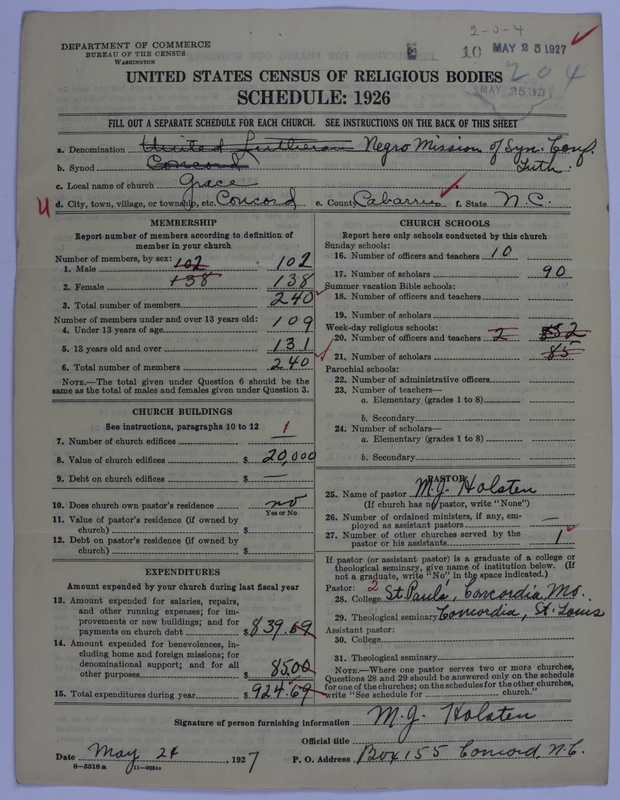 2-0-4
DEPARTMENT OF COMMERCE
BUREAU OF THE CENSUS
WASHINGTON
10 MAY 25 1927
204
MAY 25 1927
UNITED STATES CENSUS OF RELIGIOUS BODIES
SCHEDULE: 1926
FILL OUT A SEPARATE SCHEDULE FOR EACH CHURCH. SEE INSTRUCTIONS ON THE BACK OF THIS SHEET
a. Denomination United Lutheran Negro Mission of Syn. Conf.
b. Synod Concord Luth.
c. Local name of church Grace
4 d. City, town, village, or township, etc. Concord e. County Cabarrus f. State N.C.
MEMBERSHIP
Report number of members according to definition of member in your church
Number of members, by sex:
1. Male 102 102
2. Female 138 138
3. Total number of members 240
Number of members under and over 13 years old:
4. Under 13 years of age 109
5. 13 years old and over 131
6. Total number of members 240
NOTE.—The total given under Question 6 should be the same as the total of males and females given under Question 3.
CHURCH BUILDINGS
See instructions, paragraphs 10 to 12
7. Number of church edifices 1
8. Value of church edifices $ 20,000
9. Debt on church edifices $ —
10. Does church own pastor's residence no
Yes or No
11. Value of pastor's residence (if owned by church) $
12. Debt on pastor's residence (if owned by church) $
EXPENDITURES
Amount expended by your church during last fiscal year
13. Amount expended for salaries, repairs, and other running expenses; for improvements or new buildings; and for payments on church debt $ 839.69
14. Amount expended for benevolences, including home and foreign missions; for denominational support; and for all other purposes $ 85.00
15. Total expenditures during year $ 924.69
CHURCH SCHOOLS
Report here only schools conducted by this church
Sunday schools:
16. Number of officers and teachers 10
17. Number of scholars 90
Summer vacation Bible schools:
18. Number of officers and teachers
19. Number of scholars
Week-day religious schools:
20. Number of officers and teachers 2
21. Number of scholars 85
Parochial schools:
22. Number of administrative officers
23. Number of teachers—
a. Elementary (grades 1 to 8)
b. Secondary
24. Number of scholars—
a. Elementary (grades 1 to 8)
b. Secondary
PASTOR
25. Name of pastor M. J. Holsten
(If church has no pastor, write "None")
26. Number of ordained ministers, if any, employed as assistant pastors —
27. Number of other churches served by the pastor or his assistants 1
If pastor (or assistant pastor) is a graduate of a college or theological seminary, give name of institution below. (If not a graduate, write "No" in the space indicated.)
Pastor: 2
28. College St. Paul's, Concordia, Mo.
29. Theological seminary Concordia, St. Louis
Assistant pastor:
30. College
31. Theological seminary
NOTE.—Where one pastor serves two or more churches, Questions 28 and 29 should be answered only on the schedule for one of the churches; on the schedules for the other churches, write "See schedule for church."
Signature of person furnishing information M. J. Holsten
Official title
Date May 24, 1927 P. O. Address Box 155 Concord, N.C.
8-5518a